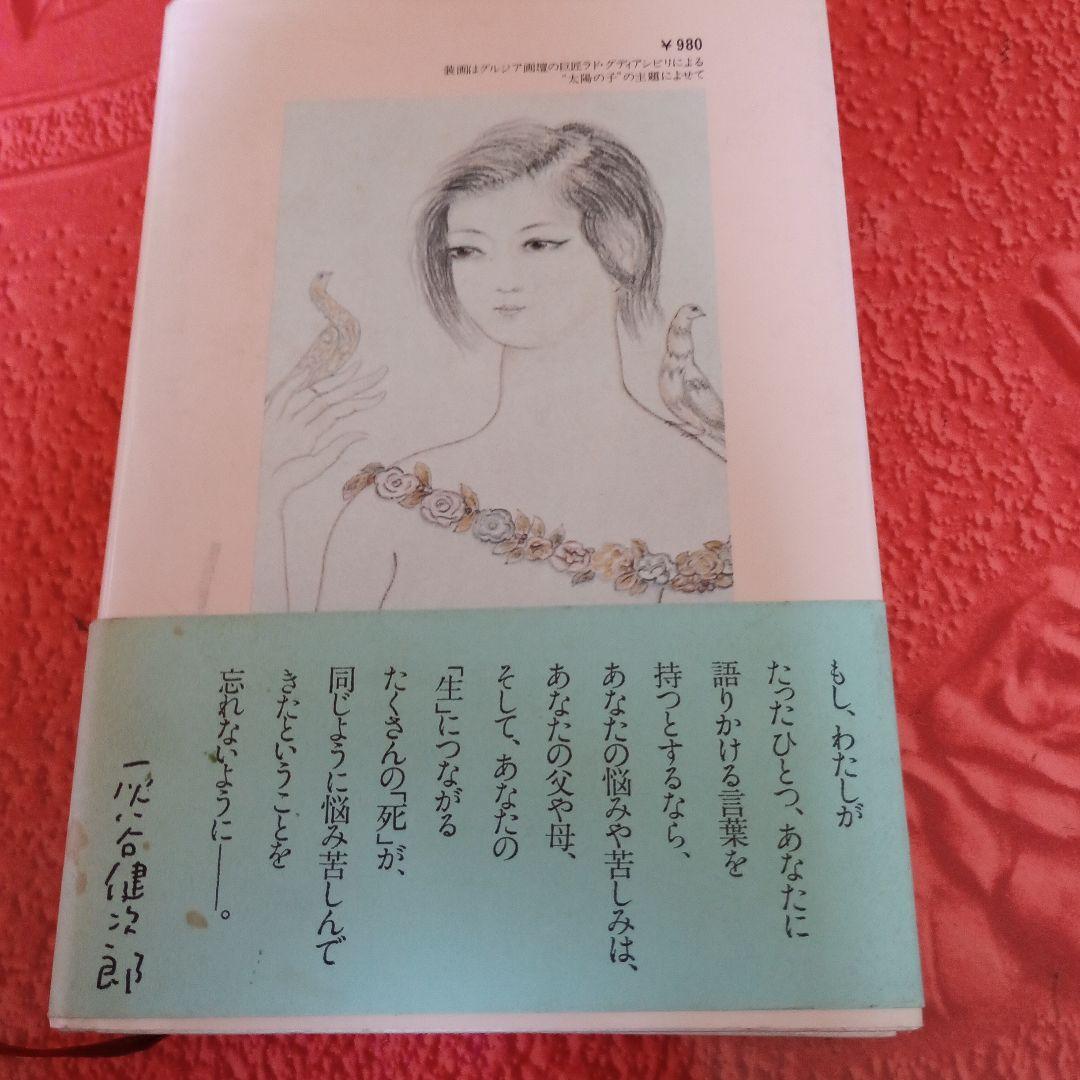 ¥980
装画はグルジア画壇の巨匠ラド・グディアシビリによる
“太陽の子”の主題によせて
もし、わたしが
たったひとつ、あなたに
語りかける言葉を
持つとするなら、
あなたの悩みや苦しみは、
あなたの父や母、
そして、あなたの
「生」につながる
たくさんの「死」が、
同じように悩み苦しんで
きたということを
忘れないように——。
灰谷健次郎